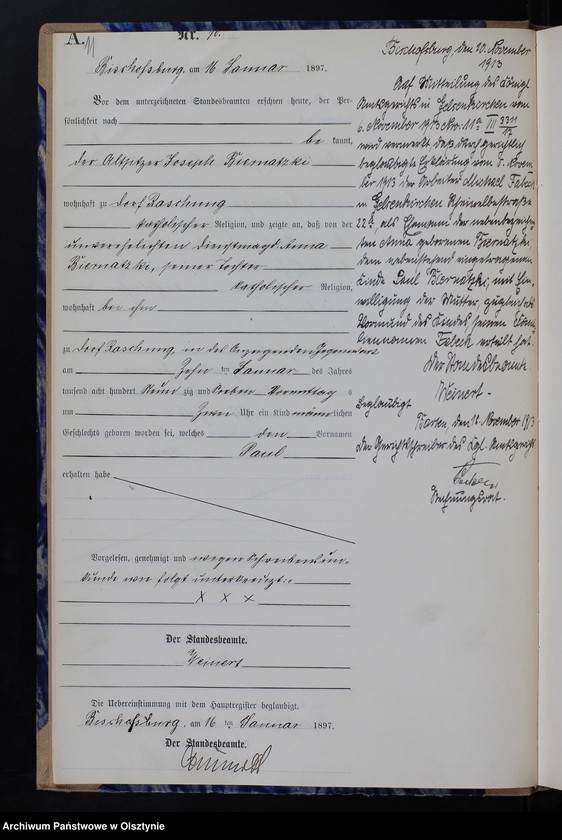 A. 11
Nr. 10.
Bischofsburg, am 16 Januar 1897.
Vor dem unterzeichneten Standesbeamten erschien heute, der Per-
sönlichkeit nach
be kannt,
der Altsitzer Joseph Biernatzki
wohnhaft zu Dorf Raschung
katholischer Religion, und zeigte an, daß von der
unverehelichten Dienstmagd Anna
Biernatzki, seiner Tochter
katholischer Religion,
wohnhaft bei ihm
zu Dorf Raschung, in des Anzeigenden Gegenwart
am Zehn ten Januar des Jahres
tausend acht hundert Neun zig und sieben Vormittag s
um Zwei Uhr ein Kind männlichen
Geschlechts geboren worden sei, welches den Vornamen
Paul
erhalten habe
Vorgelesen, genehmigt und wegen Schreibensun-
kunde wie folgt unterkreuzt:
X X X
Der Standesbeamte.
Weinert
Die Uebereinstimmung mit dem Hauptregister beglaubigt.
Bischofsburg, am 16 ten Januar 1897.
Der Standesbeamte.
Bischofsburg, den 20. November
1913
Auf Mitteilung des Königl
Amtsgerichts in Gelsenkirchen vom
6. November 1913 No. 11a III
wird vermerkt, daß durch gerichtlich
beglaubigte Erklärung vom 5. Novem
ber 1913 der Arbeiter Michael
in Gelsenkirchen
22a als Ehemann der nebenbezeichne
ten Anna geborenen Biernatzki
dem nebenstehend eingetragenen
Kinde Paul Biernatzki, mit Ein
willigung der Mutter, zugleich als
Vormund des Kindes seinen Fami
liennamen erteilt hat.
Der Standesbeamte
Weinert.
Beglaubigt
den November 1913
Der Gerichtsschreiber des Kgl. Amtsgerichts
Rechnungsrat.
Archiwum Państwowe w Olsztynie